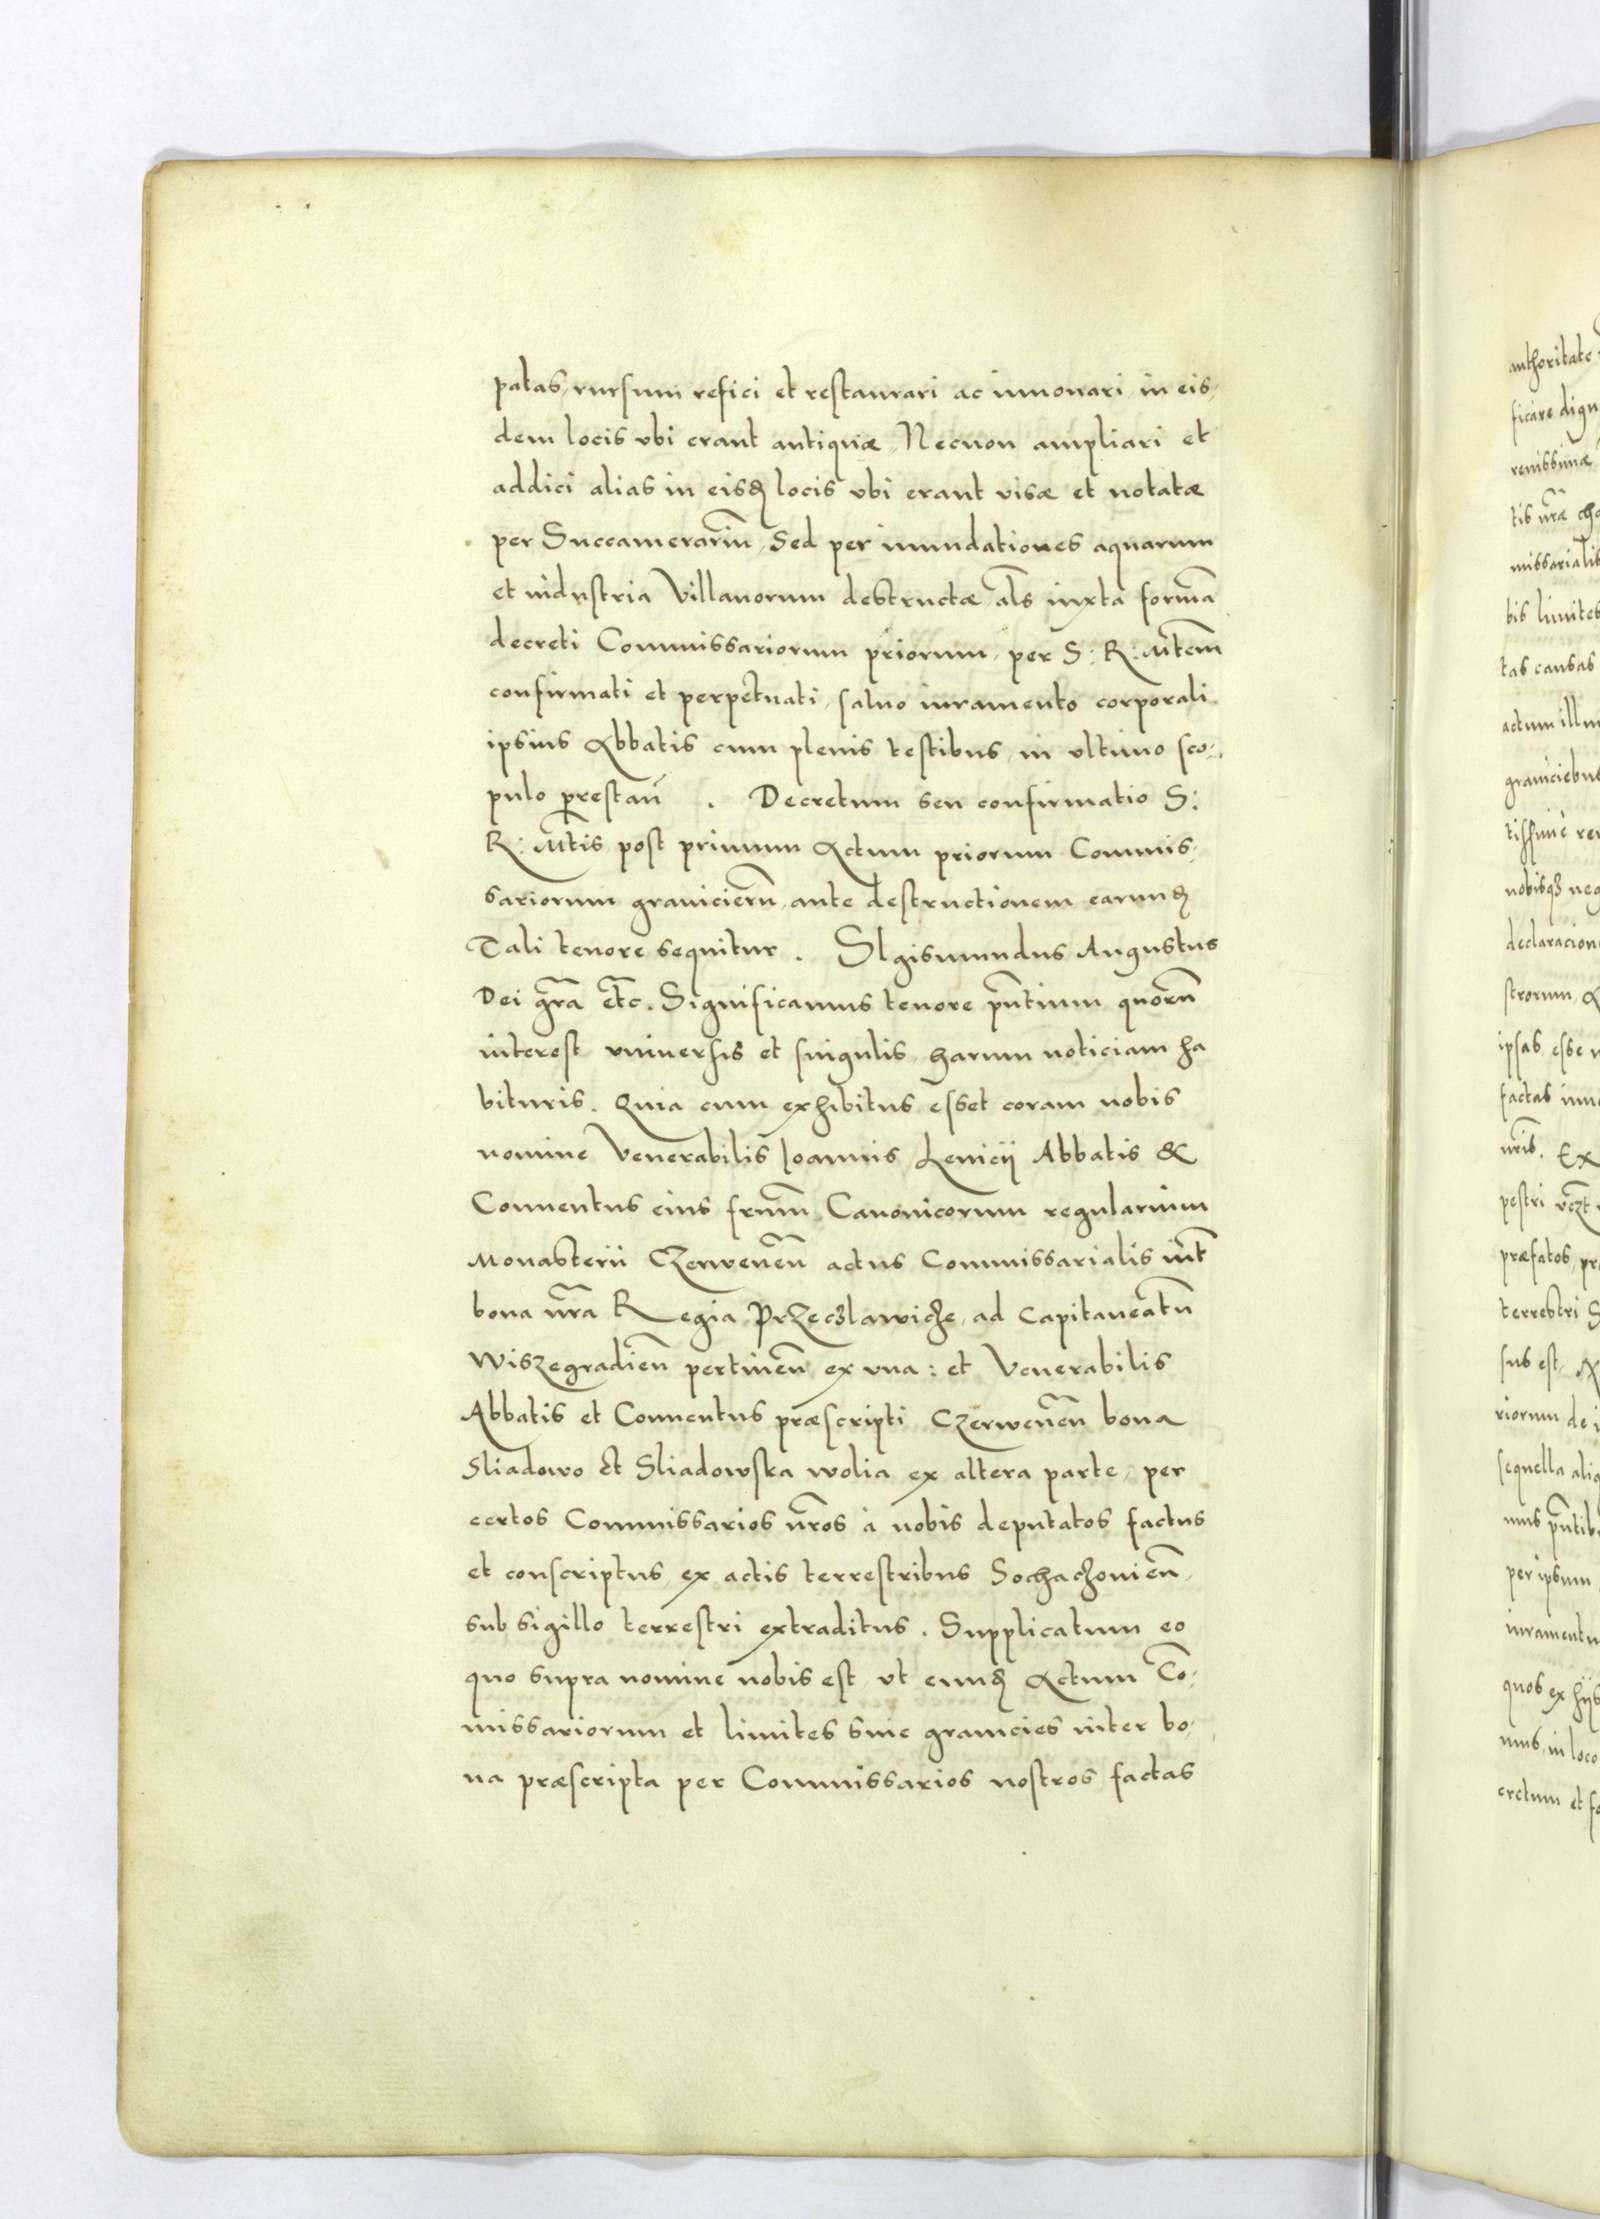 patas, rursum refici et restaurari ac innouari, in eis,
dem locis vbi erant antiquæ, Necnon ampliari et
addici alias in eisdẽ locis vbi erant visæ et notatæ
per Succamerariũ, Sed per inundationes aquarum
et industria Villanorum destructæ, als̃ iuxta formã
decreti Commissariorum priorum, per S: R: Mtem̃
confirmati et perpetuati, saluo iuramento corporali
ipsius Abbatis cum plenis testibus, in vltimo sco,
pulo prestañ . Decretum seu confirmatio S:
R: Mtis̃ post primum Actum priorum Commis,
sariorum granicierũ, ante destructionem earundẽ
Tali tenore sequitur . SIgismundus Augustus
Dei grã etc̃. Significamus tenore pñtium quorũ
interest vniuersis et singulis, harum noticiam ha
bituris. Quia cum exhibitus esset coram nobis
nomine Venerabilis Ioannis Lenicij Abbatis &
Conuentus eius frum̃ Canonicorum regularium
Monasterii Czerweneñ actus Commissarialis int̃
bona nr̃a Regia Przeczlawicze, ad Capitaneatũ
Wiszegradieñ pertineñ ex vna: et Venerabilis
Abbatis et Conuentus præscripti Czerweneñ bona
Sliadowo et Sliadowska wolia ex altera parte, per
certos Commissarios nr̃os à nobis deputatos factus
et conscriptus, ex actis terrestribus Sochachouieñ,
sub sigillo terrestri extraditus. Supplicatum eo
quo supra nomine nobis est, vt eundẽ Actum Cõ,
missariorum et limites siue granicies inter bo,
na præscripta per Commissarios nostros factas
authoritate
ficare dign
renissimæ
tis nr̃æ
missarialis
bis limites
tas causas
actum
graniciebus
nobisqȝ neg
declaracion
strorum
ipsas esse
factas
nr̃is. Ex
pestri
præfatos, pr
terrestri S
sus est,
riorum de i
sequella aliq
mus pñtib
per ipsum
iuramentu
quos ex hijs
mus, in loco
et fa